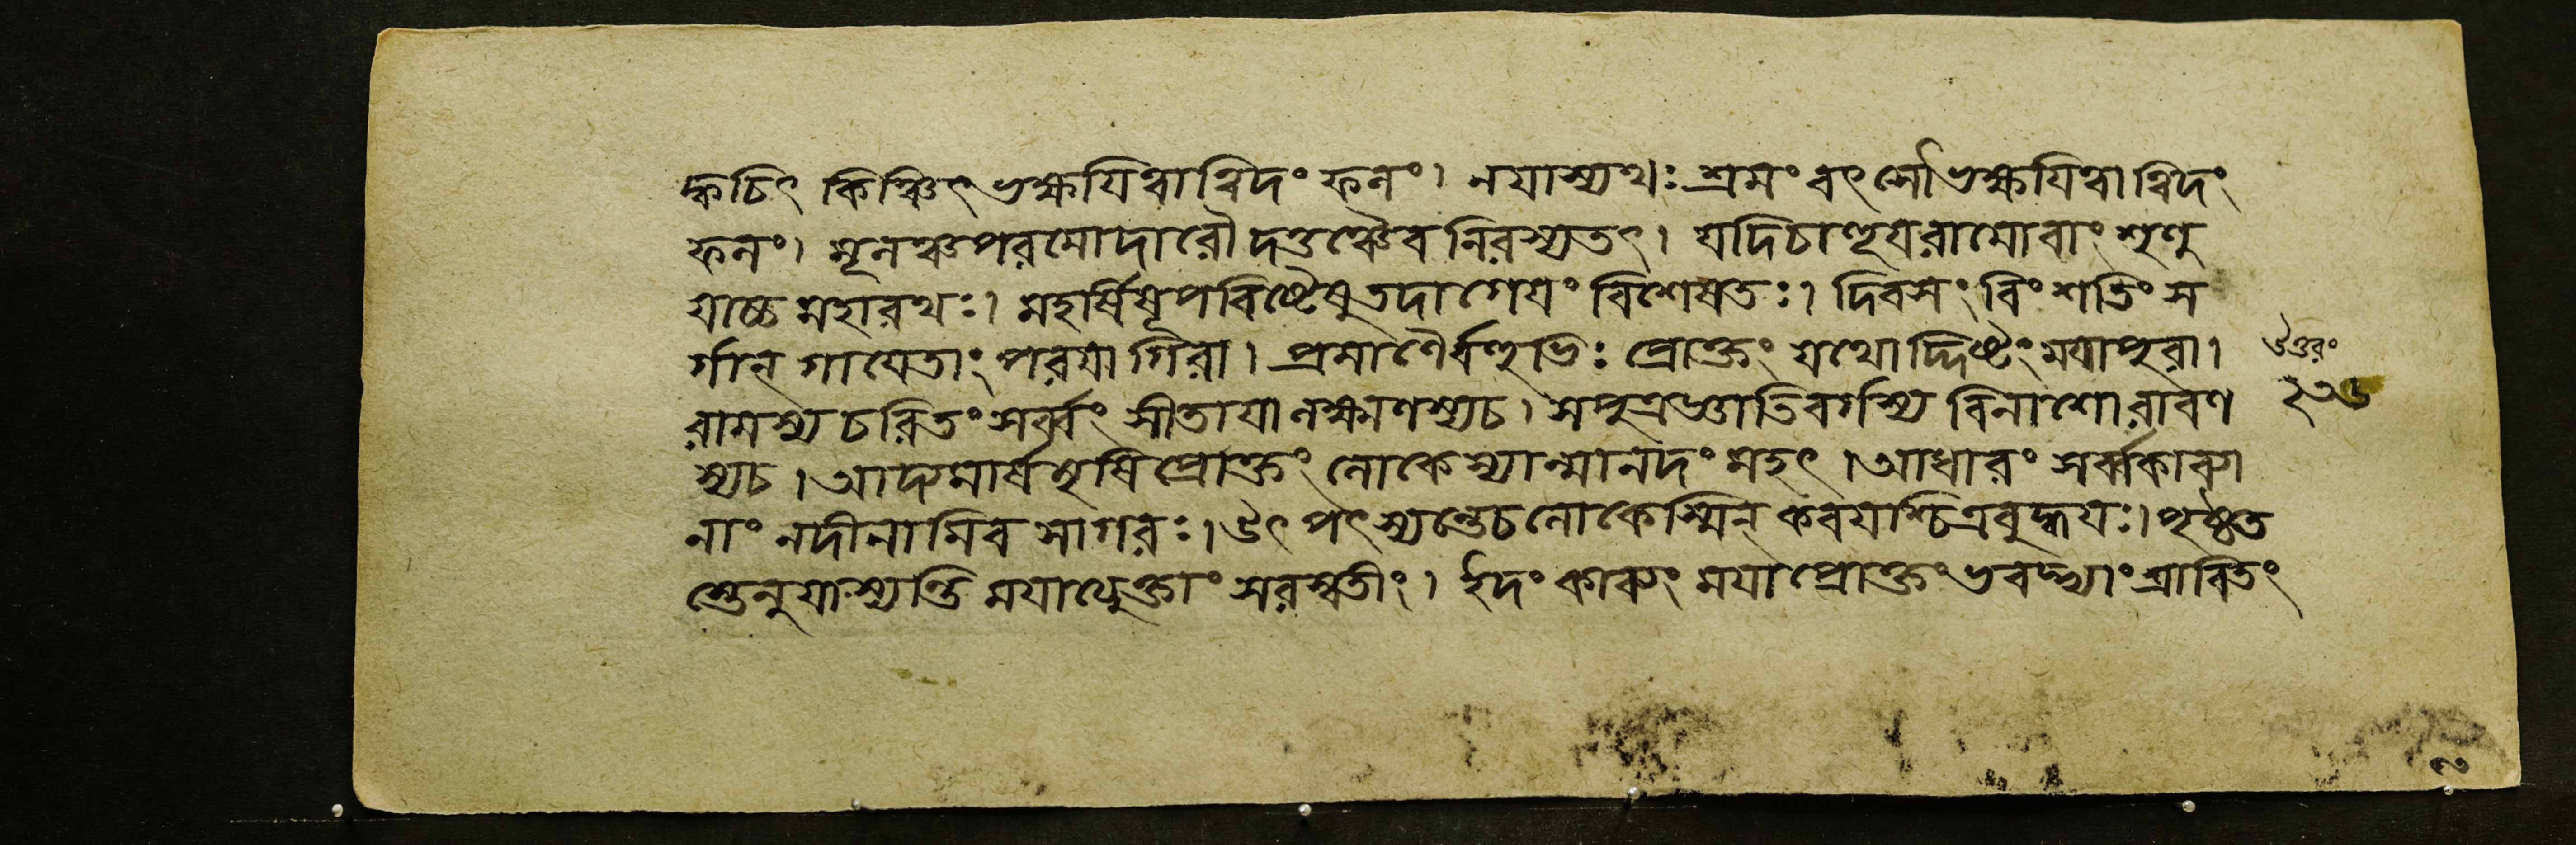 দ্ধচিৎ কিঞ্চিৎ ভক্ষযিত্বাত্বিদং ফলং। নযাস্যথঃ শ্রমং বৎসৌ ভক্ষযিত্বাত্বিদং
ফলং। মূলঞ্চপরমোদারৌ দত্তঞ্চৈবনিরস্যতৎ। যদিচাহূযরামোবাং শৃণু
যাচ্চ মহারথঃ। মহর্ষিষূপবিষ্টেষুতদাগেযং বিশেষতঃ। দিবসং বিংশতিং স
র্গান্ গাযেতাং পরযাগিরা। প্রমাণৈর্বহুভিঃ প্রোক্তং যথোদ্দিষ্টং মযাপুরা।
রামস্য চরিতং সর্ব্বং সীতাযা লক্ষ্মণস্যচ। সপুত্রজ্ঞাতিবর্গস্য বিনাশোরাবণ
স্যচ। আদ্যমার্ষঋষিপ্রোক্তং লোকেস্যান্মানদং মহৎ। আধারং সর্ব্বকাব্যা
নাং নদীনামিব সাগরঃ। উৎপৎস্যন্তেচলোকেস্মিন্ কবযশ্চিত্রবুদ্ধযঃ। পৃষ্ঠত
স্তেনুযাস্যন্তি মযাপ্যুক্তাং সরস্বতীং। ইদং কাব্যং মযাপ্রোক্তং ভবদ্ভ্যাং শ্রাবিতং
উত্তরং